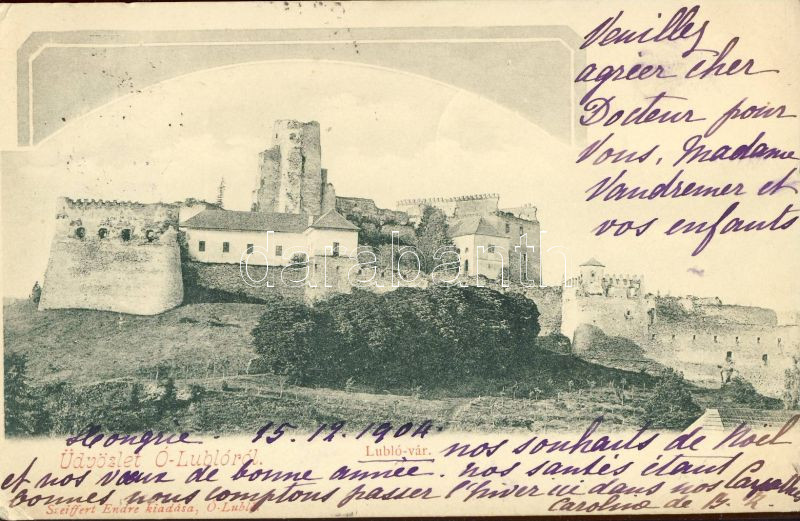 Veuillez
agréer cher
Docteur pour
Vous, Madame
Vaudremer et
vos enfants
Hongrie. 15.12.1904.
nos souhaits de Noël
Üdvözlet Ó-Lublóról.
Lubló-vár.
et nos vœux de bonne année. nos santés étant
bonnes nous comptons passer l'hiver ici dans nos
Caroline de
Szeiffert Endre kiadása, Ó-Lubló
darabanth